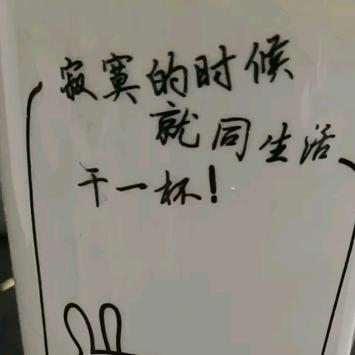 寂寞的时候
就同生活
干一杯！